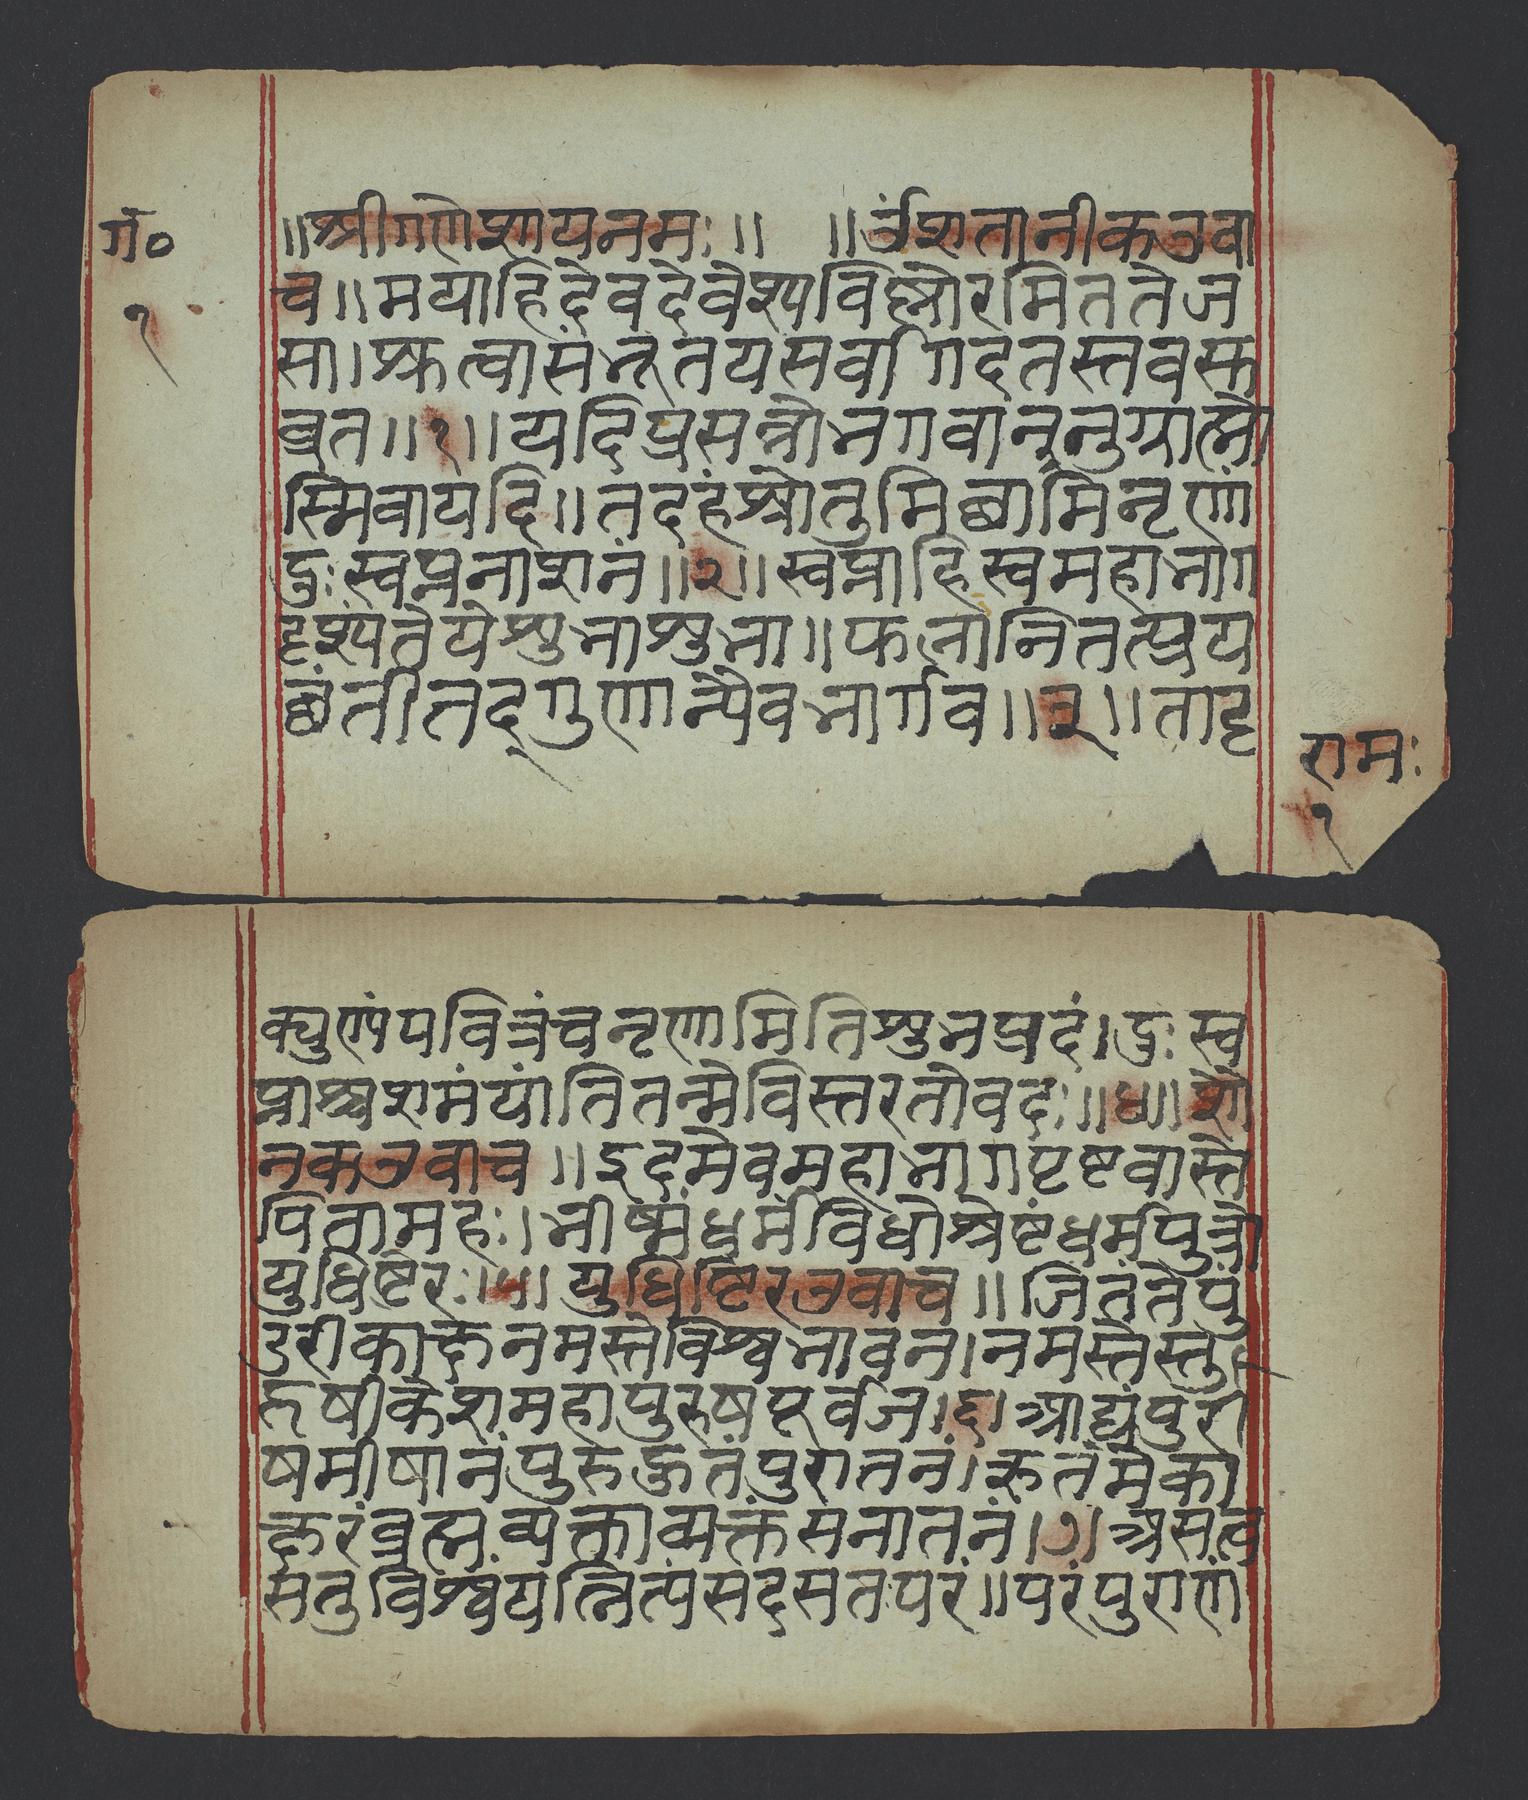 गं०
१
॥श्रीगणेशायनमः॥ ॥ॐशतानीकउवा
च॥मयाहिदेवदेवेश्यविष्नोरमिततेज
सा।श्रुत्वासंभूतयसर्वागदतस्तवस्रु
व्रत॥१॥यदिप्रसन्नोभगवाननुग्राह्नो
स्मिवायदि॥तदहंश्रोतुमिछामिनृणां
दुःस्वप्ननाशनं॥२॥स्वप्नाहिस्वमहाभाग
दृश्यंतेयेशुभाशुभा॥फलानितत्प्रय
छंतीतद्गुणान्यैवभार्गव॥३॥तादृ
रामः
१
क्युण्यंपवित्रंचनृणामितिशुभप्रदं।दुःस्व
प्नाश्चशमंयांतितन्मेविस्तरतोवदः॥४॥शौ
नकउवाच॥इदमेवमहाभागपृष्टवास्ते
पितामहः।भीष्मंधर्मविधोश्रेष्टंधर्मपुत्रो
युधिष्टिरः।५।युधिष्टिरउवाच॥जितंतेपुं
डरीकाक्षनमस्तेविश्वभावन।नमस्तेस्तु
हृषीकेशमहापुरुषपूर्वज।६।आद्यंपुरी
षमीषानंपुरुहूतंपुरातनं।ऋतमेका
क्षरंव्रह्मव्यक्ताव्यक्तंसनातनं।७।असत्व
सतुविश्वंयन्नित्यंसदसतःपरं॥परंपुराणं